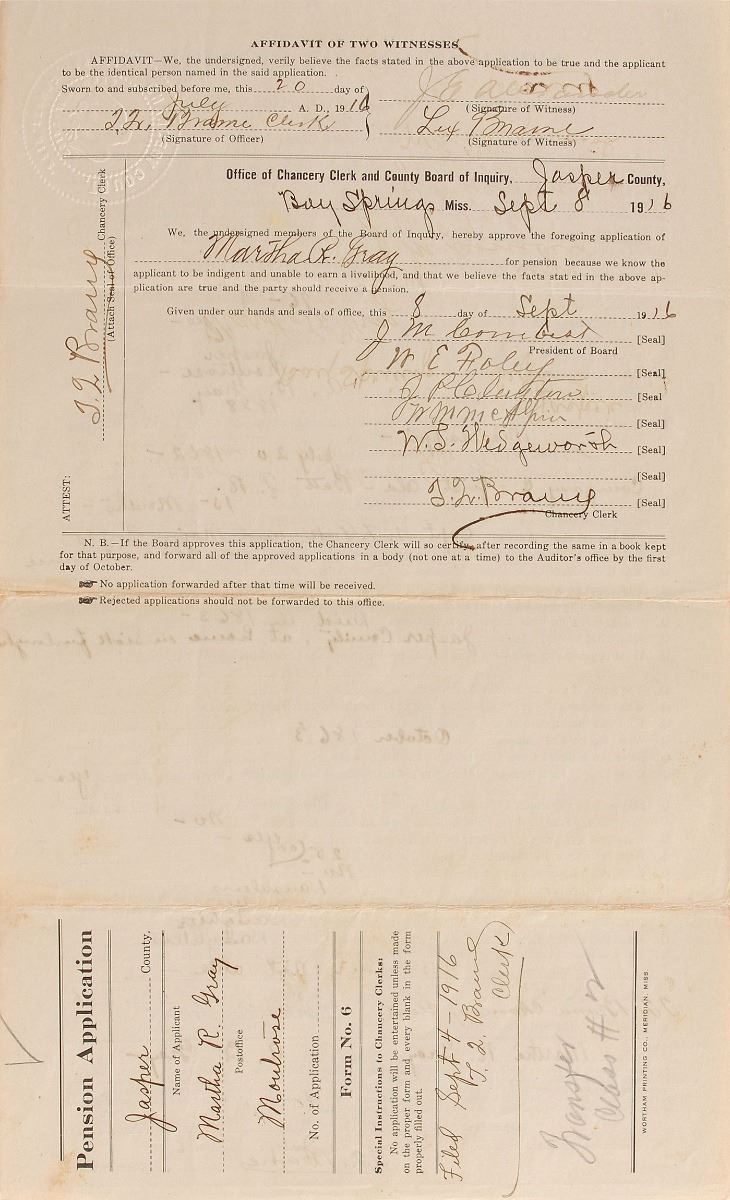 AFFIDAVIT OF TWO WITNESSES
AFFIDAVIT—We, the undersigned, verily believe the facts stated in the above application to be true and the applicant
to be the identical person named in the said application.
Sworn to and subscribed before me, this 20 day of
July A. D., 1916
(Signature of Witness)
T. Q. Brame Clerk Lex Brame
(Signature of Officer) (Signature of Witness)
Office of Chancery Clerk and County Board of Inquiry, Jasper County,
Bay Springs Miss. Sept 8 1916
We, the undersigned members of the Board of Inquiry, hereby approve the foregoing application of
Martha R. Gray for pension because we know the
applicant to be indigent and unable to earn a livelihood, and that we believe the facts stat ed in the above ap-
plication are true and the party should receive a pension.
Given under our hands and seals of office, this 8 day of Sept 1916
J M [Seal]
President of Board
W E Foley [Seal]
J P [Seal
W M McAlpin [Seal]
W. S. Wedgeworth [Seal]
[Seal]
T. Q. Brame [Seal]
Chancery Clerk
ATTEST:
T. Q. Brame Chancery Clerk
(Attach Seal of Office)
N. B.—If the Board approves this application, the Chancery Clerk will so certify, after recording the same in a book kept
for that purpose, and forward all of the approved applications in a body (not one at a time) to the Auditor's office by the first
day of October.
No application forwarded after that time will be received.
Rejected applications should not be forwarded to this office.
Pension Application
Jasper County.
Name of Applicant
Martha R. Gray
Postoffice
Montrose
No. of Application
Form No. 6
Special Instructions to Chancery Clerks:
No application will be entertained unless made
on the proper form and every blank in the form
properly filled out.
Filed Sept 4-1916
T. Q. Brame
Clerk
Transfer
Class # 2
WORTHAM PRINTING CO., MERIDIAN, MISS.